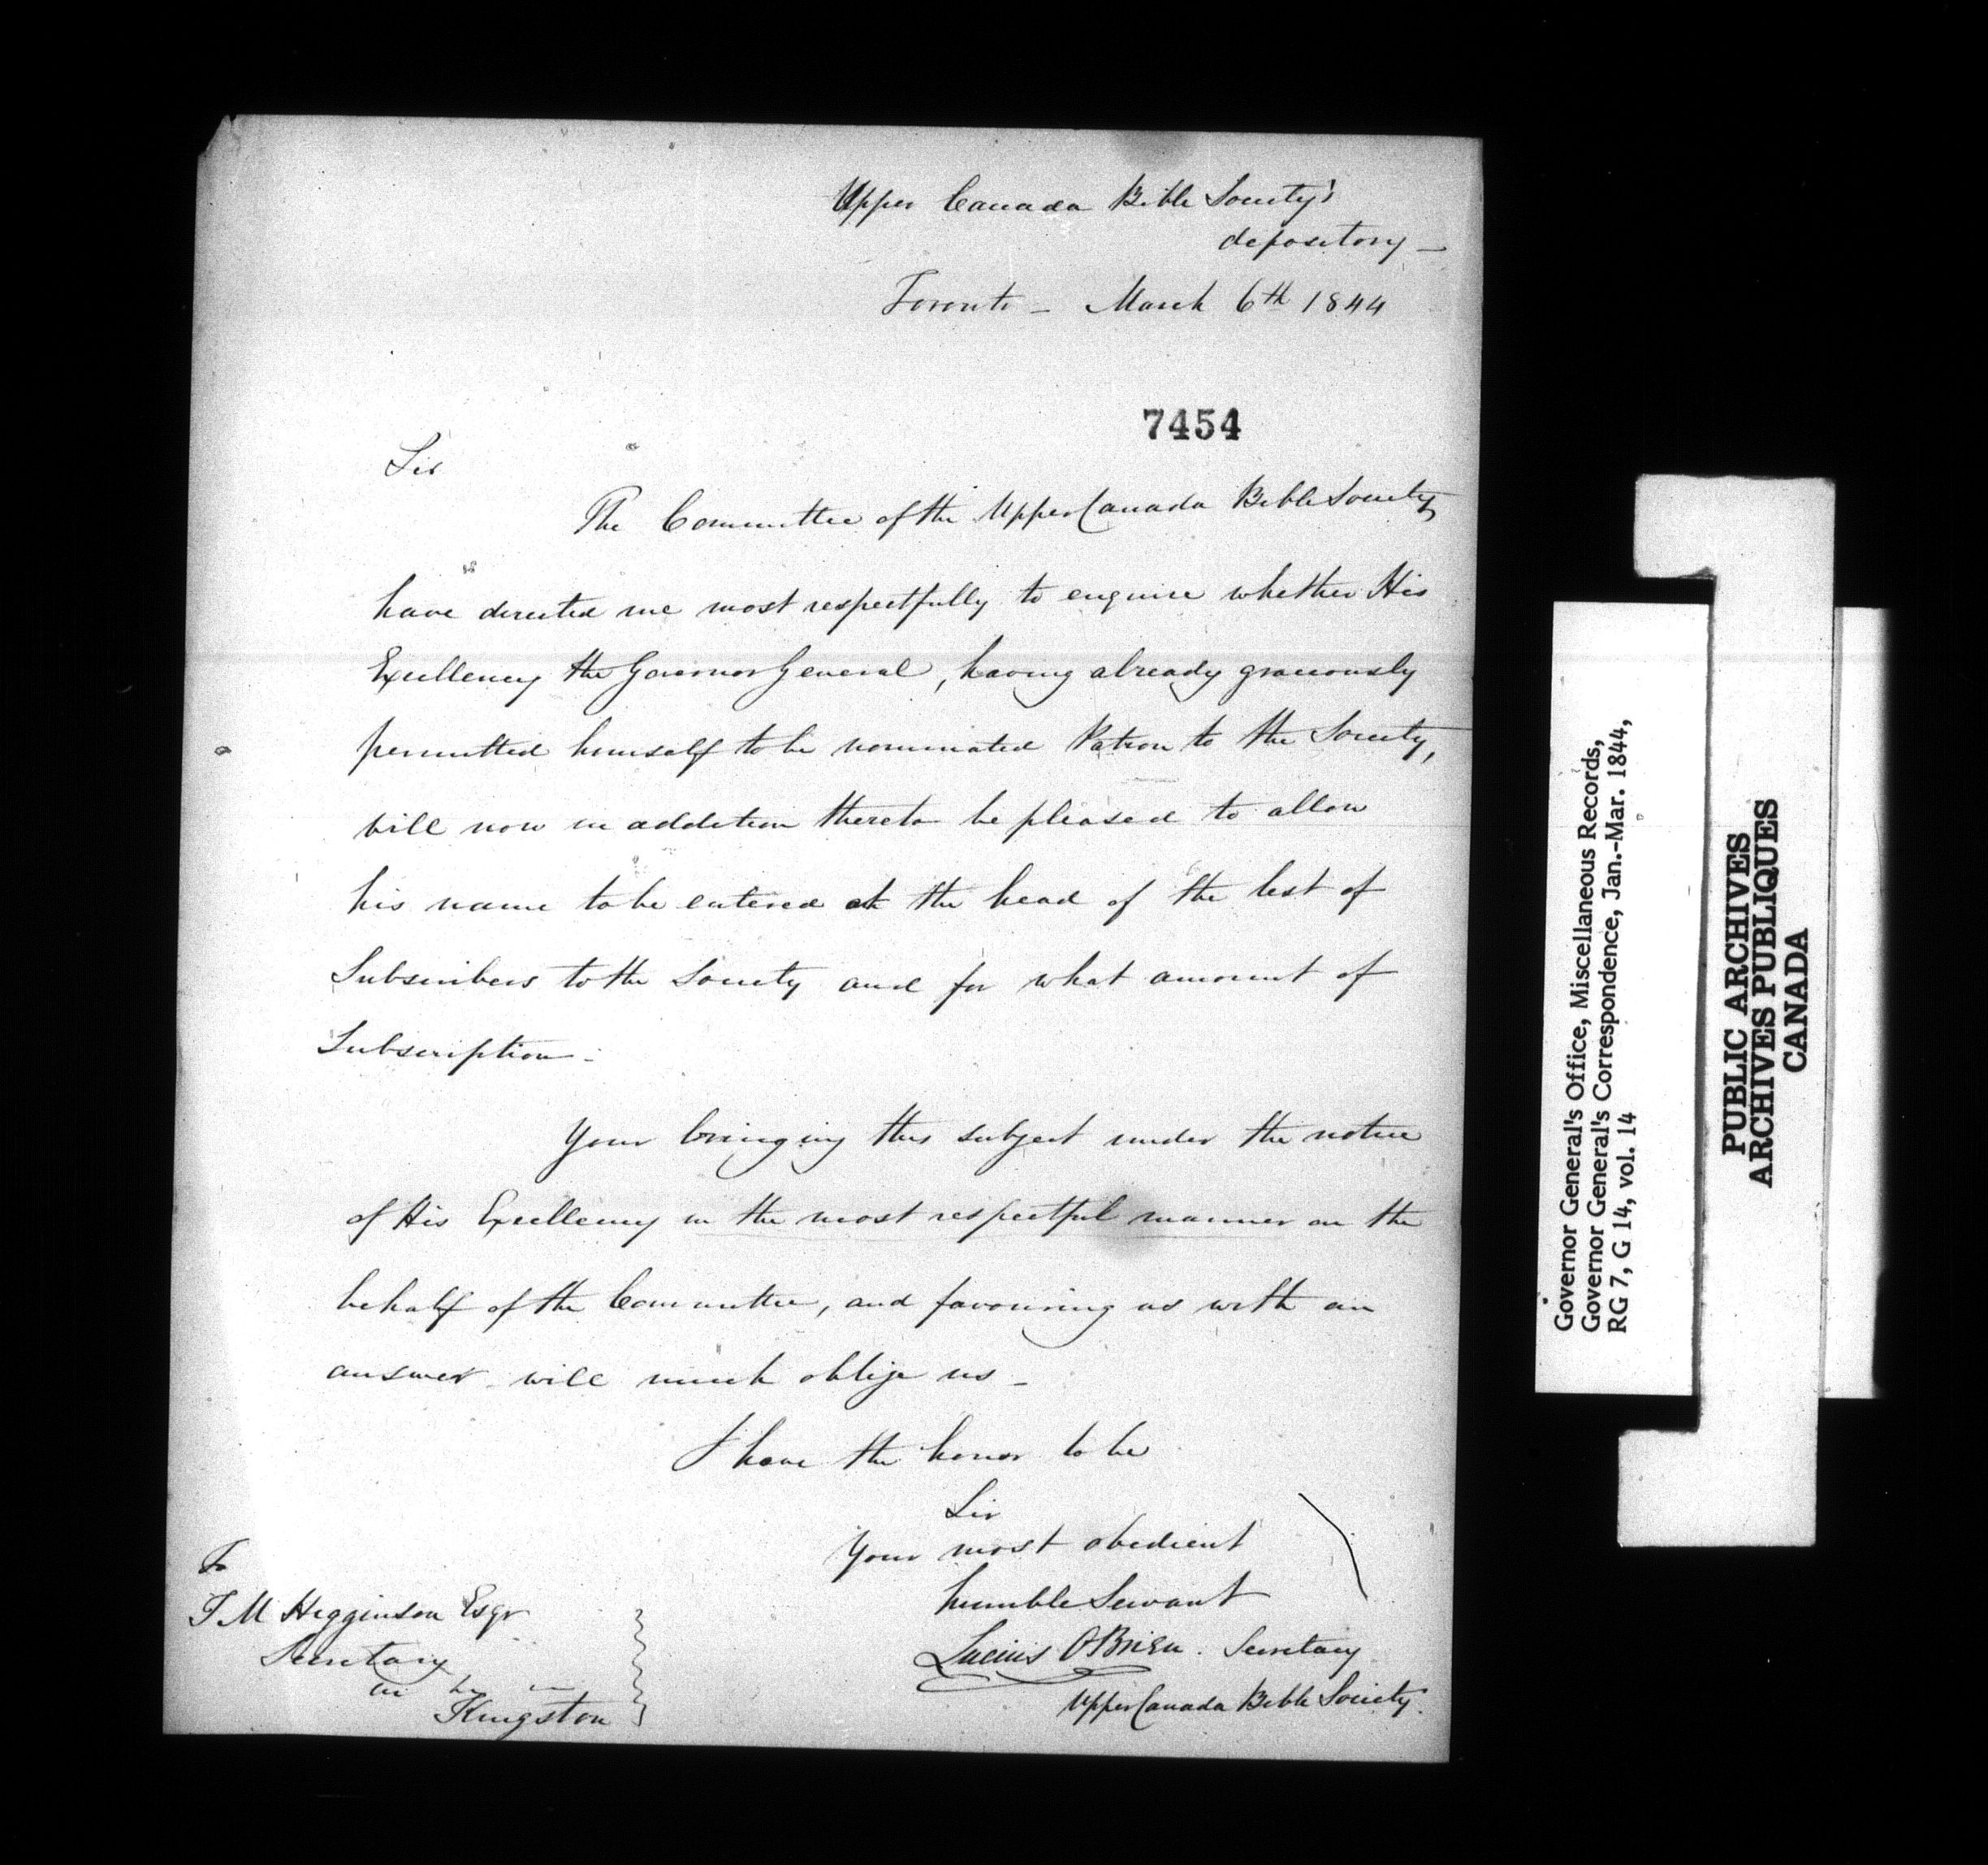 Upper Canada Bible Society's
depository —
Toronto — March 6th 1844
7454
Sir
The Committee of the Upper Canada Bible Society
have directed me most respectfully to enquire whether His
Excellency the Governor General, having already graciously
permitted himself to be nominated Patron to the Society,
will now in addition thereto be pleased to allow
his name to be entered at the head of the list of
Subscribers to the Society and for what amount of
Subscription —
Your bringing this subject under the notice
of His Excellency in the most respectful manner on the
behalf of the Committee, and favouring us with an
answer will much oblige us —
I have the honor to be
Sir
Your most obedient
humble Servant
Lucius O'Brien. Secretary
Upper Canada Bible Society.
To
J M Higginson Esqr
Secretary
Kingston
Governor General's Office, Miscellaneous Records,
Governor General's Correspondence, Jan.-Mar. 1844,
RG 7, G 14, vol. 14
PUBLIC ARCHIVES
ARCHIVES PUBLIQUES
CANADA